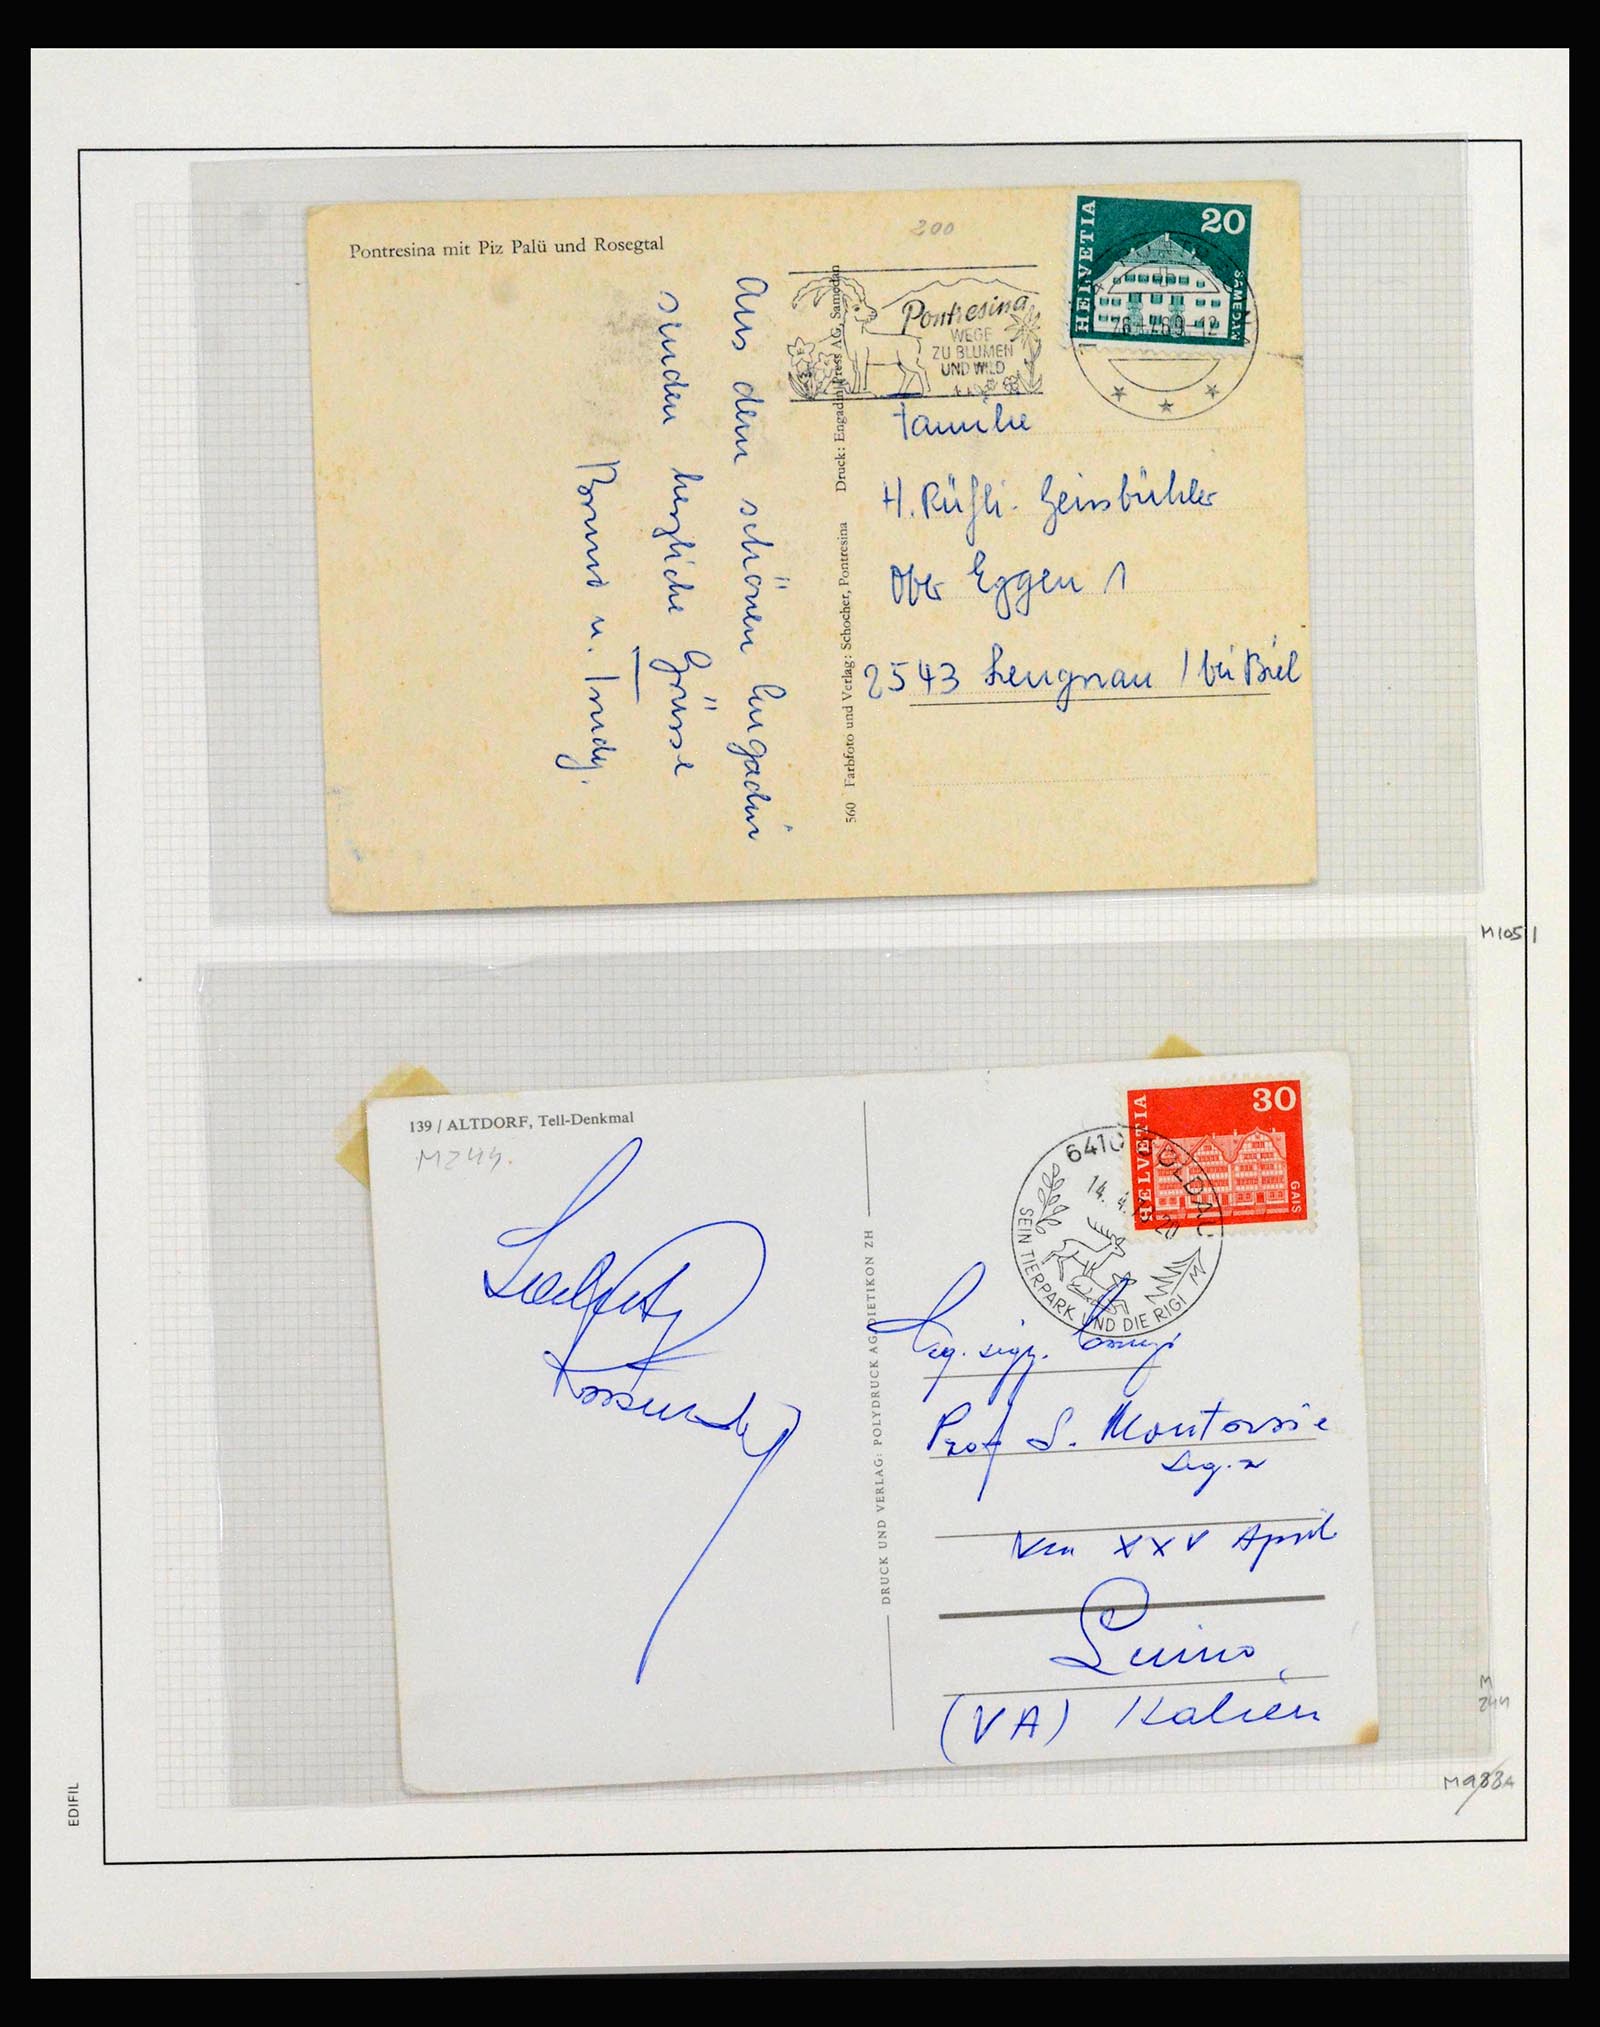 Pontresina mit Piz Palü und Rosegtal
200
HELVETIA
20
SAMEDAN
Pontresina
WEGE
ZU BLUMEN
UND WILD
Aus dem schönen Engadin
senden herzliche Grüsse
Bruno u. Trudy.
560 Farbfoto und Verlag: Schocher, Pontresina Druck: Engadin Press AG, Samedan
Familie
H. Rüfli-Geissbühler
Ober Eggen 1
2543 Lengnau / bei Biel
M1051
139 / ALTDORF, Tell-Denkmal
M244.
HELVETIA
30
GAIS
6410 GOLDAU
SEIN TIERPARK UND DIE RIGI
DRUCK UND VERLAG: POLYDRUCK AG DIETIKON ZH
Prof S.
Via XXV April
Luino,
(VA) Italien
M
244
M983A
EDIFIL